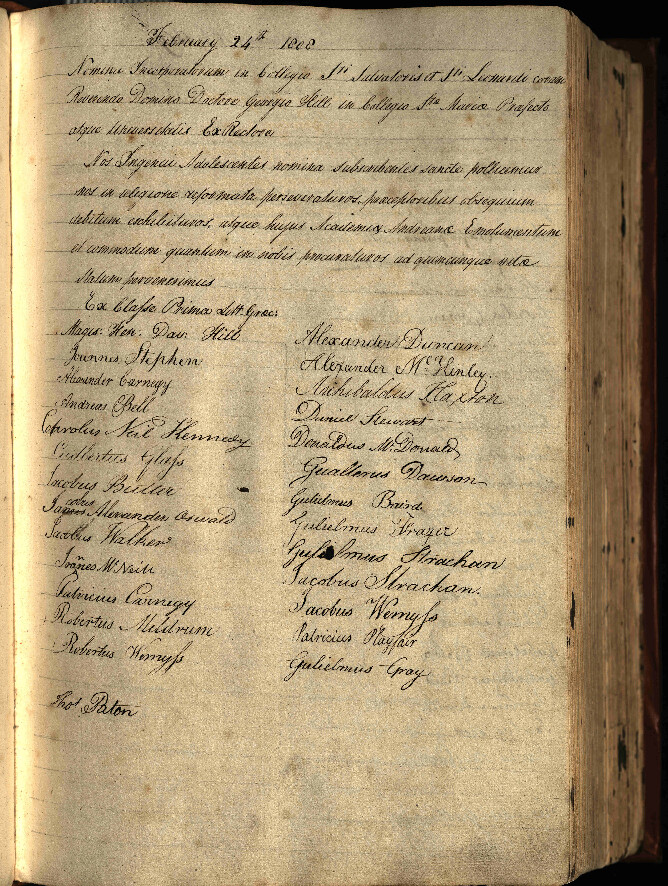 February 24th 1808
Nomina Incorporatorum in Collegio Sti Salvatoris et Sti Leonardi coram
Reverendo Domino Doctore Georgio Hill in Collegio Stæ Mariæ Præfecto
atque Universitatis Ex Rectore
Nos Ingenui Adolescentes nomina subscribentes sancte pollicemur
nos in religione reformata perseveraturos, præceptoribus obsequium
debitum exhibituros, atque hujus Academiæ Andreanæ Emolumentum
et commodum quantum in nobis procuraturos ad quemcunque vitæ
statum pervenerimus
Ex Classe Prima Litt. Græc.
Magis: Hen: Dav: Hill
Joannes Stephen
Alexander Carnegy
Andreas Bell
Carolus Neil Kennedy
Cuthbertus Glass
Jacobus Butter
Jacobus Alexander Oswald
Jacobus Walker
Joañes McNeill
Patricius Carnegy
Robertus Meldrum
Robertus Wemyss
Thos Paton
Alexander Duncan
Alexander McKinley.
Archibaldus Haxton
Daniel Stewart
Donaldus McDonald
Gualterus Dawson
Gulielmus Baird
Gulielmus Frazer
Gulielmus Strachan
Jacobus Strachan.
Jacobus Wemyss
Patricius Playfair
Gulielmus Gray